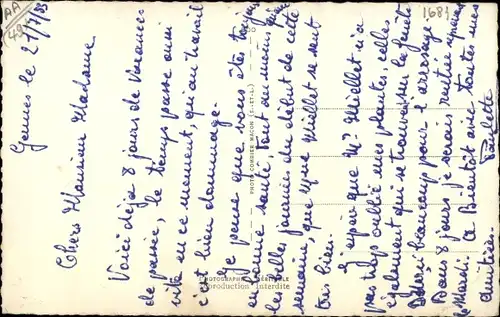 AA
49
1683
Gennes le 21/7/53
Chers Monsieur Madame
Voici déjà 8 jours de vacances
de passée, le temps passe aussi
vite en ce moment, qu'au travail
c'est bien dommage.
Je pense que vous êtes toujours
en bonne santé, tout au moins
les belles journées du début de cette
semaine, que Mme Miellet se sent
très bien.
J'espère que Mr Miellet n'a
pas trop oublié mes plantes, celles
également qui se trouvent sur la
beaucoup pour l'arrosage
Dans 8 jours je serais rentrée
le Mardi. A Bientôt avec toutes mes
amitiés.
Paulette
PHOTO COMBIER MACON (S.-et-L.)
PHOTOGRAPHIE VÉRITABLE
Reproduction Interdite